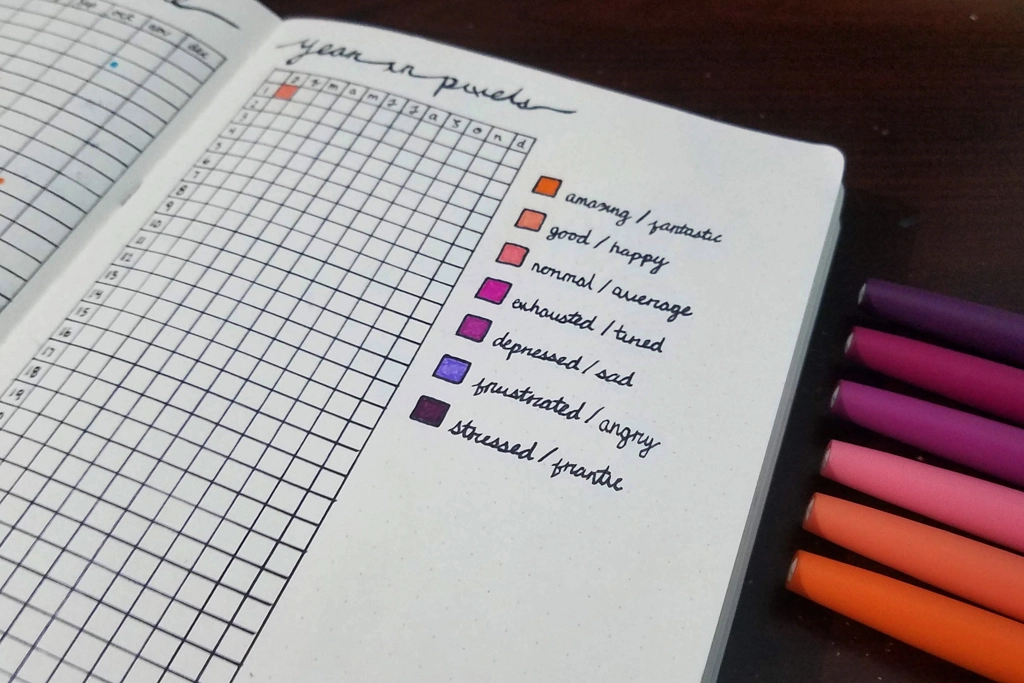 sep oct nov dec
year in pixels
J F m a m J J a s o n d
1
2
3
4
5
6
7
8
9
10
11
12
13
14
15
16
17
18
19
amazing / fantastic
good / happy
normal / average
exhausted / tired
depressed / sad
frustrated / angry
stressed / frantic